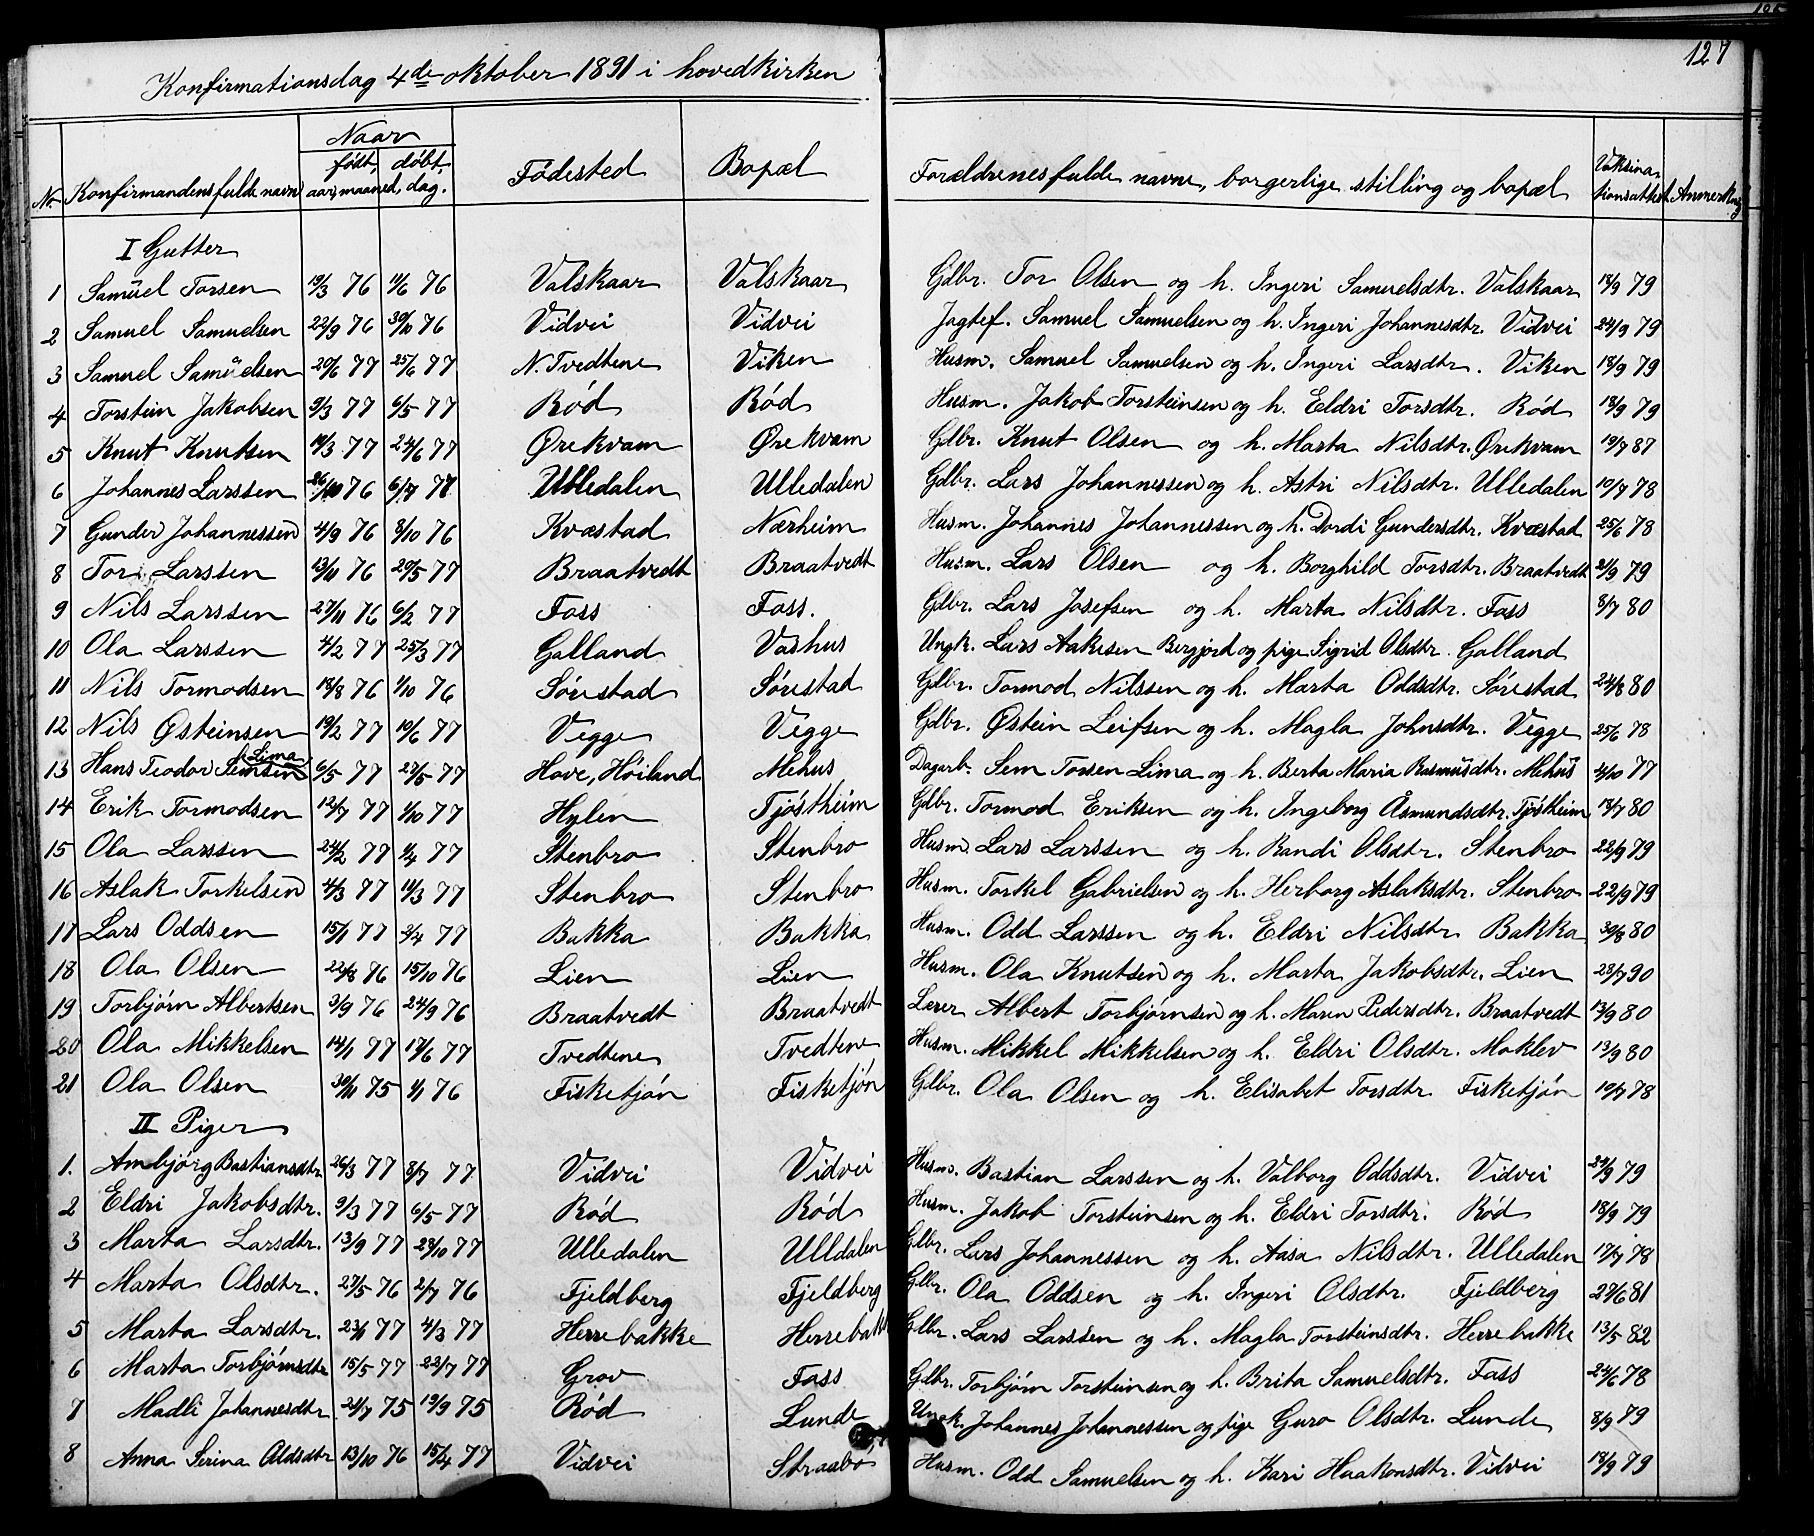 127
Konfirmationsdag 4de oktober 1891 i hovedkirken
No. Konfirmandens fulde navn Naar født, døbt, aar, maaned, dag. Fødested Bopæl Forældrenes fulde navne, borgerlige stilling og bopæl Vaksinationsattest Anmerkng
I Gutter
1 Samuel Torsen 19/3 76 11/6 76 Valskaar Valskaar Gdbr. Tor Olsen og h. Ingeri Samuelsdtr. Valskaar 18/9 79
2 Samuel Samuelsen 22/9 76 30/10 76 Vidvei Vidvei Jagtef. Samuel Samuelsen og h. Ingeri Johannesdtr. Vidvei 24/9 79
3 Samuel Samuelsen 20/6 77 25/6 77 N. Tvedtene Viken Husm. Samuel Samuelsen og h. Ingeri Larsdtr. Viken 18/9 79
4 Torstein Jakobsen 9/3 77 6/5 77 Rød Rød Husm. Jakob Torsteinsen og h. Eldri Torsdtr. Rød 18/9 79
5 Knut Knutsen 14/3 77 24/6 77 Ørekvam Ørekvam Glbr. Knut Olsen og h. Marta Nilsdtr. Ørekvam 19/7 87
6 Johannes Larssen 26/10 76 6/7 77 Ulledalen Ulledalen Gdbr. Lars Johannessen og h. Astri Nilsdtr. Ulledalen 10/7 78
7 Gunder Johannessen 4/9 76 8/10 76 Kvæstad Nærheim Husm. Johannes Johannessen og h. Dordi Gundersdtr. Kvæstad 25/6 78
8 Tor Larssen 13/11 76 20/5 77 Braatvedt Braatvedt Husm. Lars Olsen og h. Borghild Torsdtr. Braatvedt 2/9 79
9 Nils Larssen 27/11 76 6/2 77 Foss Foss. Gdbr. Lars Josefsen og h. Marta Nilsdtr. Foss 8/7 80
10 Ola Larssen 4/2 77 25/3 77 Galland Vashus Ungk. Lars Aakesen Bergjord og pige Sigrid Olsdtr. Galland
11 Nils Tormodsen 18/8 76 1/10 76 Sørestad Sørestad Gdbr. Tormod Nilssen og h. Marta Oddsdtr. Sørestad 24/8 80
12 Nils Østeinsen 19/2 77 10/6 77 Vegge Vegge Gdbr. Østein Leifsen og h. Magla Johnsdtr. Vegge 25/6 78
13 Hans Teodor Semsen Lima 6/5 77 27/5 77 Hove, Høiland Mehus Dagarb. Sem Torsen Lima og h. Berta Maria Rasmusdtr. Mehus 4/10 77
14 Erik Tormodsen 12/7 77 1/10 77 Hylen Tjøstheim Gdbr. Tormod Eriksen og h. Ingeborg Åsmundsdtr. Tjøstheim 18/7 80
15 Ola Larssen 24/2 77 1/4 77 Stenbro Stenbro Husm. Lars Larssen og h. Randi Olsdtr. Stenbro 22/9 79
16 Aslak Torkelsen 4/3 77 11/3 77 Stenbro Stenbro Husm. Torkel Gabrielsen og h. Herborg Aslaksdtr. Stenbro 22/9 79
17 Lars Oddsen 15/1 77 2/4 77 Bakka Bakka Husm. Odd Larssen og h. Eldri Nilsdtr. Bakka 30/8 80
18 Ola Olsen 22/8 76 15/10 76 Lien Lien Husm. Ola Knutsen og h. Marta Jakobsdtr. Lien 23/7 90
19 Torbjørn Albertsen 2/9 76 24/9 76 Braatvedt Braatvedt Lerer Albert Torbjørnsen og h. Maren Pedersdtr. Braatvedt 13/9 80
20 Ola Mikkelsen 14/1 77 17/6 77 Tvedtene Tvedtene Husm. Mikkel Mikkelsen og h. Eldri Olsdtr. Moklev 13/9 80
21 Ola Olsen 30/11 75 1/1 76 Fisketjøn Fisketjøn Gdbr. Ola Olsen og h. Elisabet Torsdtr. Fisketjøn 10/7 78
II Piger
1. Ambjørg Bastiansdtr. 26/3 77 8/7 77 Vidvei Vidvei Husm. Bastian Larssen og h. Valborg Oddsdtr. Vidvei 24/9 79
2 Eldri Jakobsdtr. 9/3 77 6/5 77 Rød Rød Husm. Jakob Torsteinsen og h. Eldri Torsdtr. Rød 18/9 79
3 Marta Larsdtr. 13/9 77 28/10 77 Ulledalen Ulldalen Glbr. Lars Johannessen og h. Aasa Nilsdtr. Ulledalen 17/7 78
4 Marta Olsdtr. 27/5 76 2/7 76 Fjeldberg Fjeldberg Glbr. Ola Oddsen og h. Ingeri Olsdtr. Fjeldberg 27/6 81
5 Marta Larsdtr. 23/1 77 4/3 77 Herrebakke Herrebakk Glbr. Lars Larssen og h. Magla Torsteinsdtr. Herrebakke 13/5 82
6 Marta Torbjørnsdtr 15/5 77 22/7 77 Grov Foss Glbr. Torbjørn Torsteinsen og h. Brita Samuelsdtr. Foss 24/6 78
7 Madli Johannesdtr 24/7 75 19/9 75 Rød Lunde Ungk. Johannes Johannessen og pige Guro Olsdtr. Lunde 8/9 79
8 Anna Serina Oldsdtr 13/10 76 15/4 77 Vidvei Straabø Husm. Odd Samuelsen og h. Kari Haakonsdtr. Vidvei 18/9 79